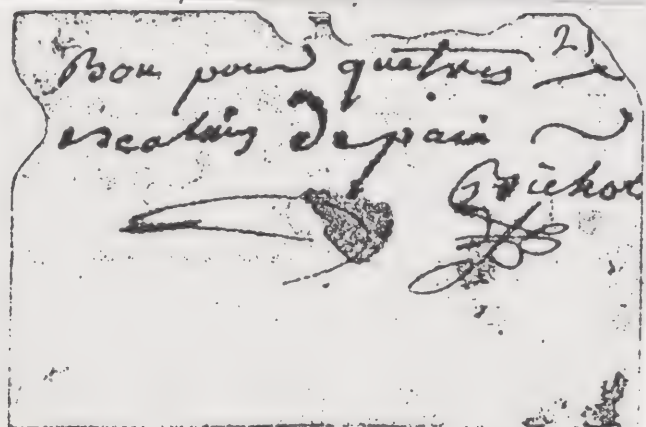 21
Bon pour quatres
escalins De pain
Brichot